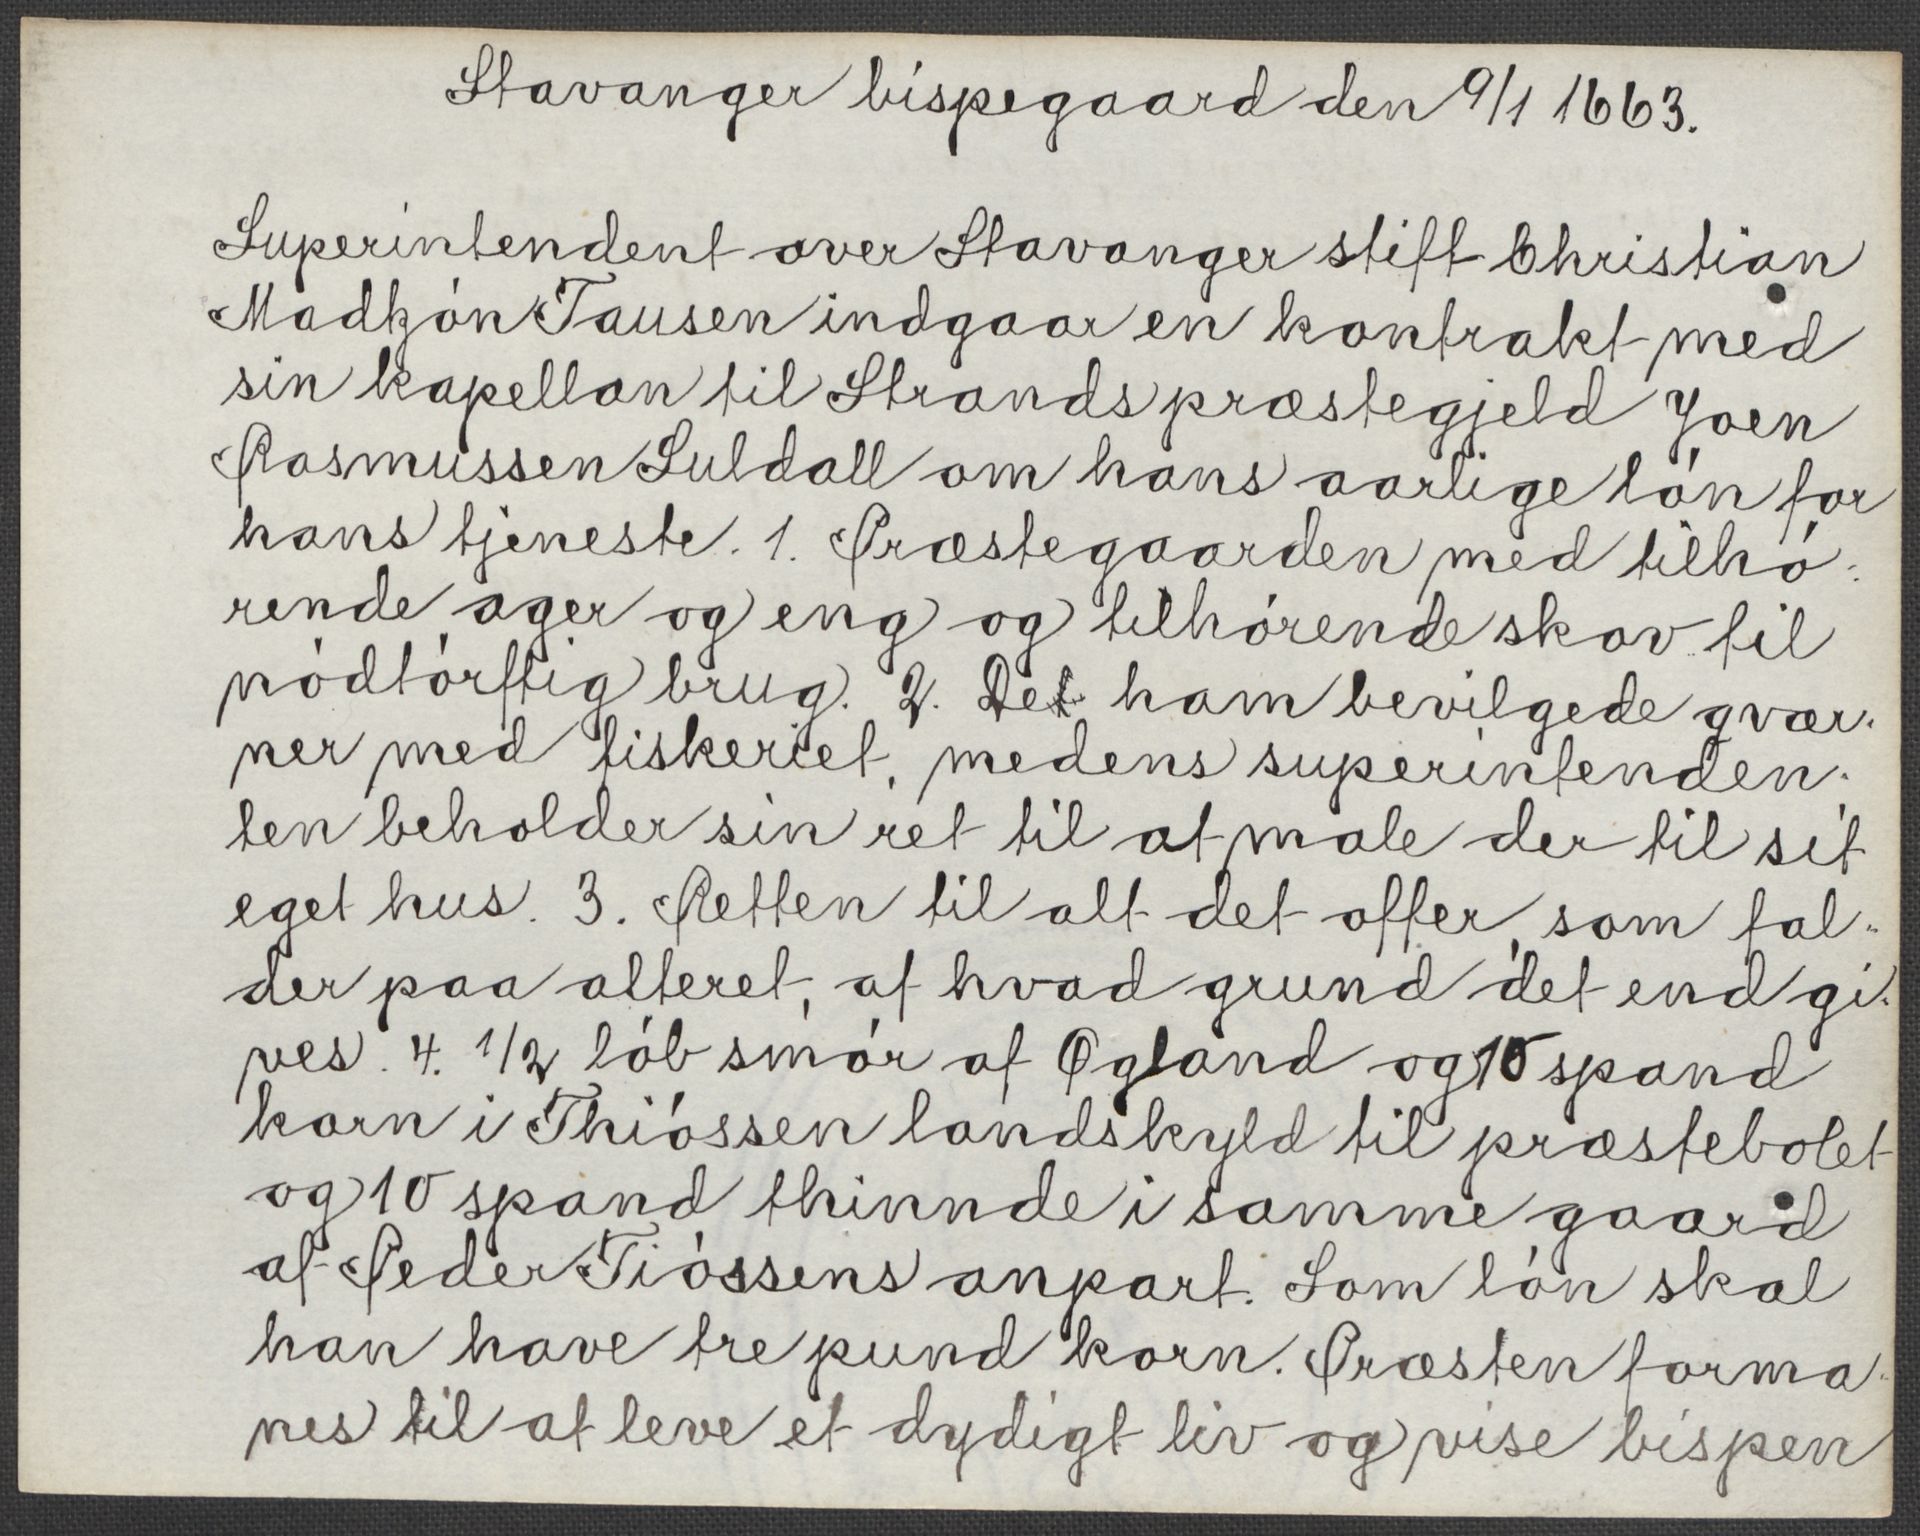 Stavanger bispegaard den 9/1 1663.
Superintendent over Stavanger stift Christian
Madtzón Tausen indgaar en kontrakt med
sin kapellan til Strands præstegjeld Joen
Rasmussen Suldall om hans aarlige lón for
hans tjeneste. 1. Præstegaarden med tilhó-
rende ager og eng og tilhórende skov til
nódtórftig brug. 2. De ham bevilgede qvær-
ner med fiskeriet, medens superintenden-
ten beholder sin ret til at male der til sit
eget hus. 3. Retten til alt det offer, som fal-
der paa alteret, af hvad grund det end gi-
ves. 4. 1/2 lób smór af Øgland og 10 spand
korn i Thióssen landskyld til præstebolet
og 10 spand thinnde i samme gaard
af Peder Tióssens anpart. Som lón skal
han have tre pund korn. Præsten forma-
nes til at leve et dydigt liv og vise bispen